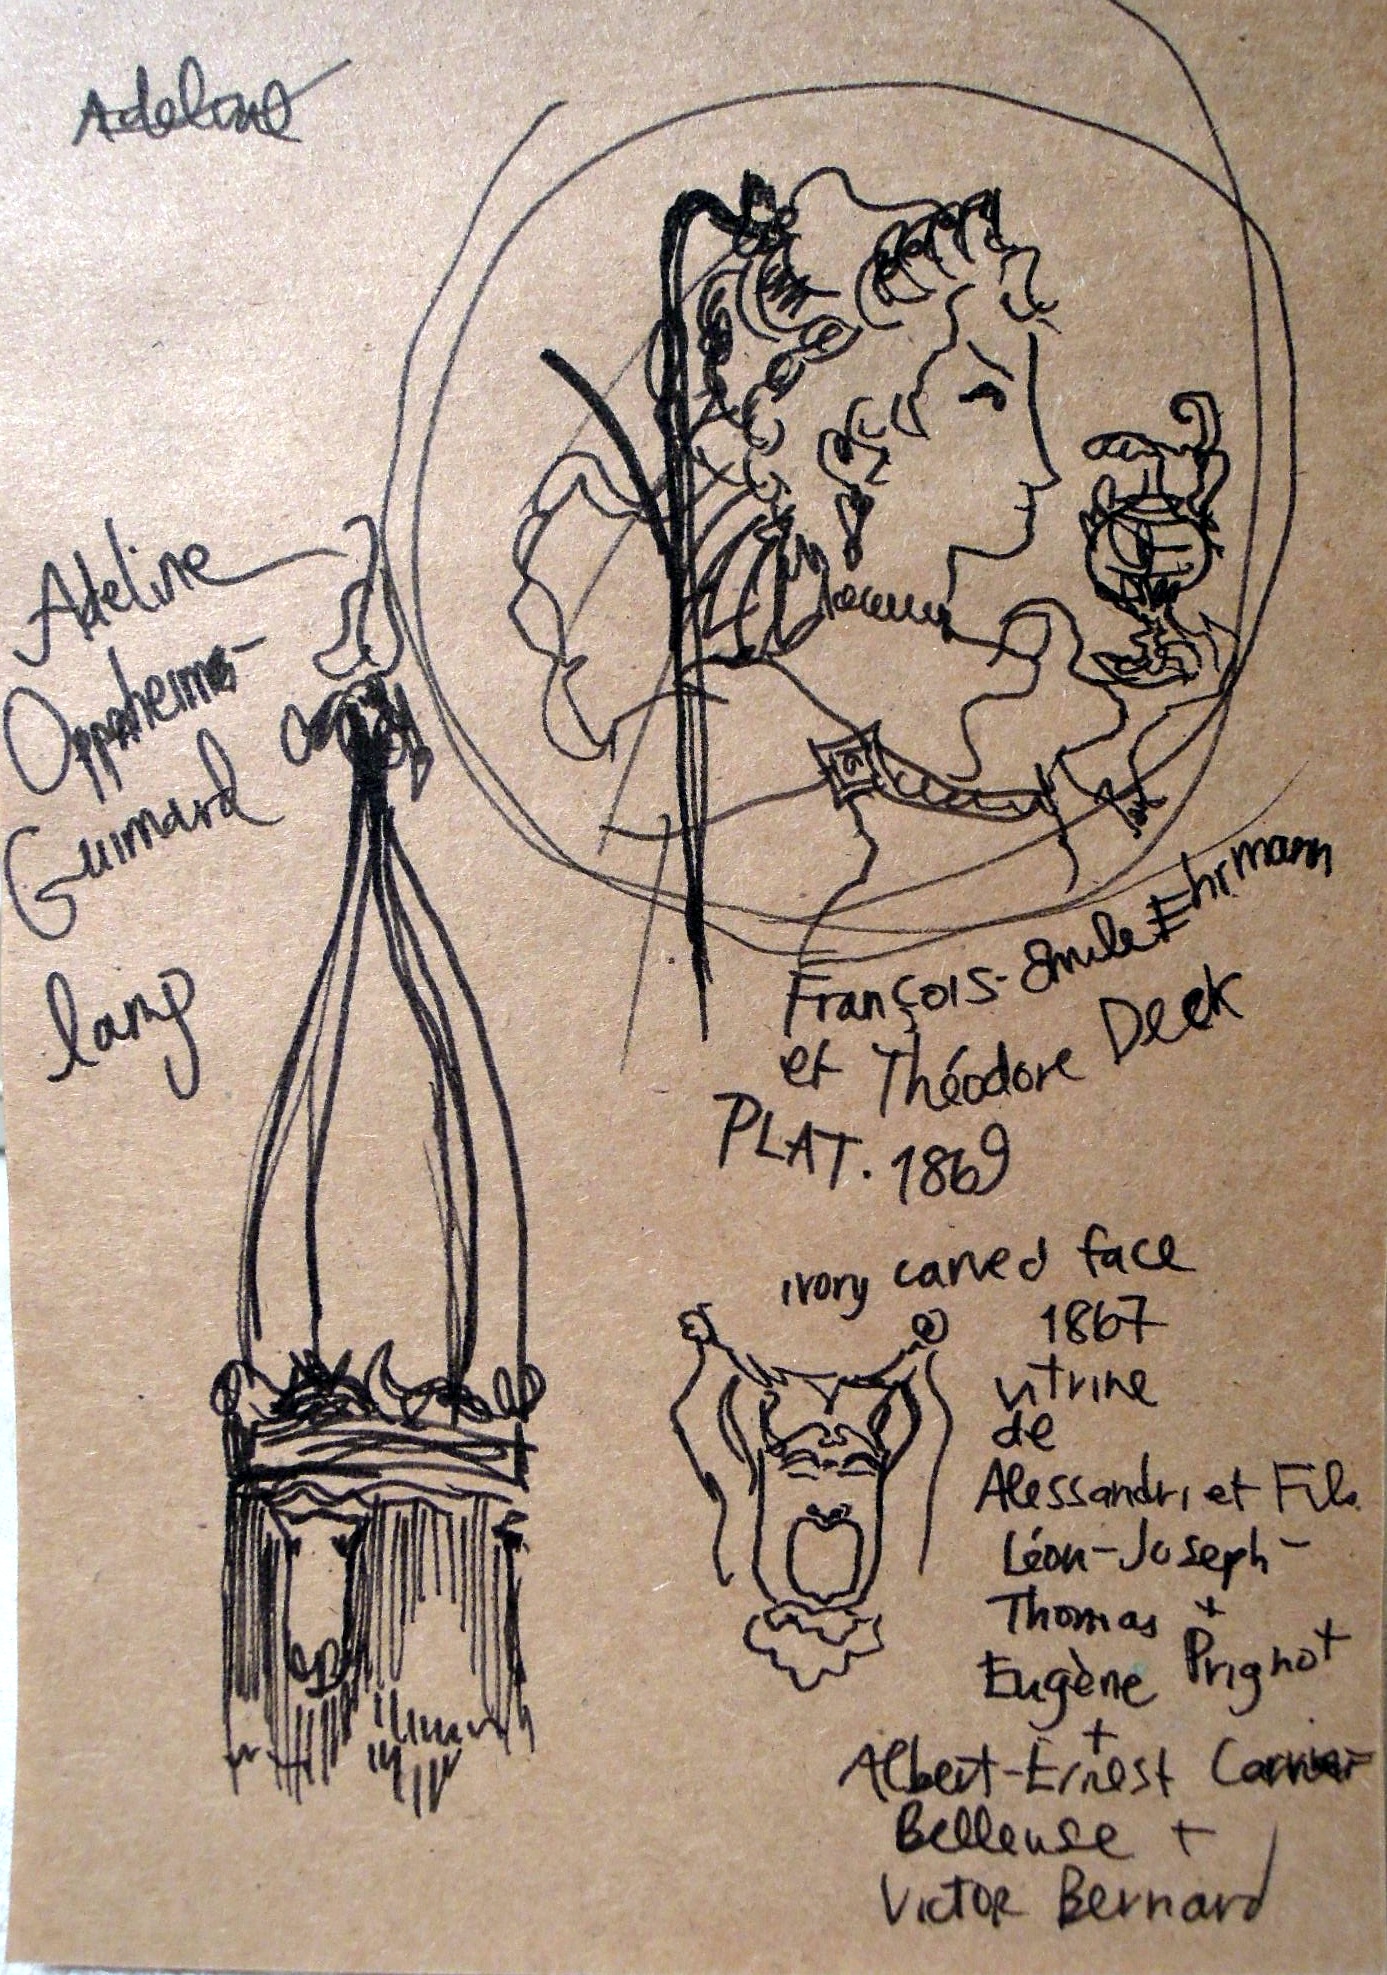 Adeline
Adeline
Oppenheimer-
Guimard
lamp
François-Emile Ehrmann
et Théodore Deck
PLAT. 1869
ivory carved face
1867
vitrine
de
Alessandri et Fils
Léon-Joseph-
Thomas +
Eugène Prignot
+
Albert-Ernest Carrier
Belleuse +
Victor Bernard